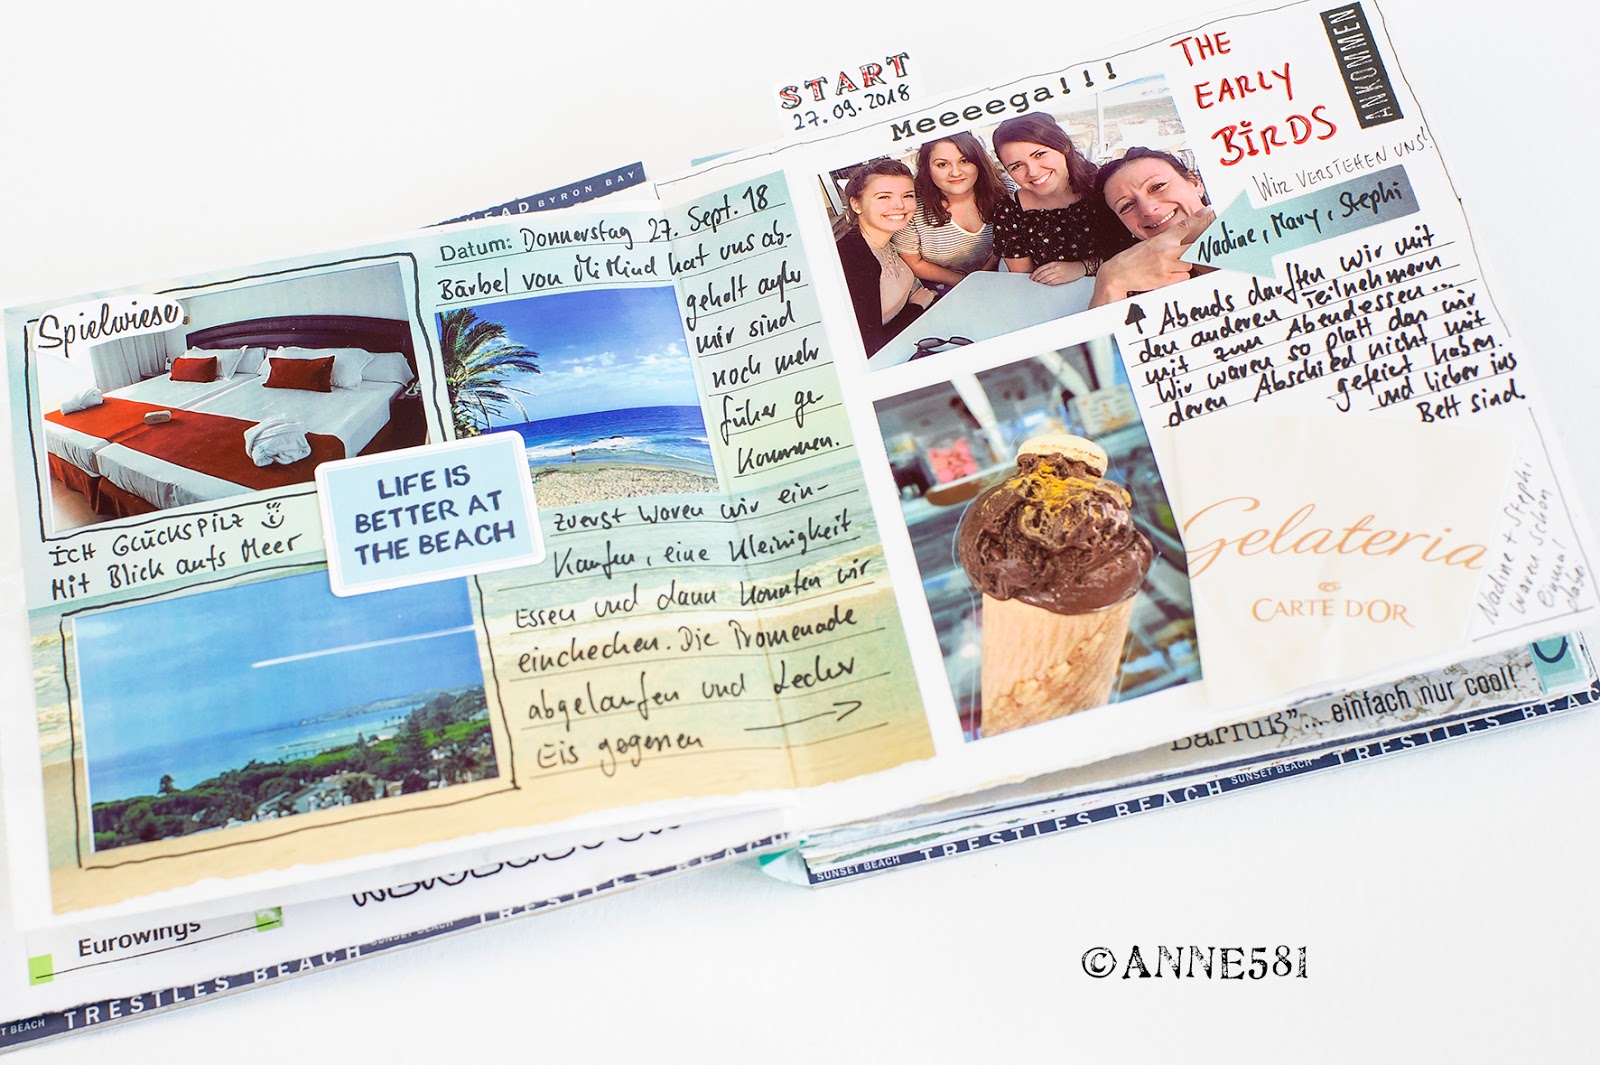 START
27.09.2018
Meeeega!!!
THE
EARLY
BIRDS
ANKOMMEN
WIR VERSTEHEN UNS!
Nadine, Mary, Stephi
HEAD BYRON BAY
Datum: Donnerstag 27. Sept. 18
Bärbel von MiMind hat uns ab-
geholt außer
mir sind
noch mehr
früher ge-
kommen.
Spielwiese.
ICH GLÜCKSPILZ
Mit Blick aufs Meer
LIFE IS
BETTER AT
THE BEACH
Zuerst waren wir ein-
kaufen, eine Kleinigkeit
Essen und dann konnten wir
einchecken. Die Promenade
abgelaufen und Lecker
Eis gegessen
Abends durften wir mit
den anderen Teilnehmern
mit zum Abendessen...
Wir waren so platt das wir
deren Abschied nicht mit
gefeiert haben.
und lieber ins
Bett sind.
Gelateria
CARTE D'OR
Nadine + Stephi
waren schon
einmal
dabei
Barfuß"... einfach nur cool!
SUNSET BEACH TRESTLES BEACH SUNSET BEACH TRESTLES BEACH
Eurowings
T BEACH TRESTLES BEACH SUNSET BEACH TRESTLES BEACH
©ANNE581